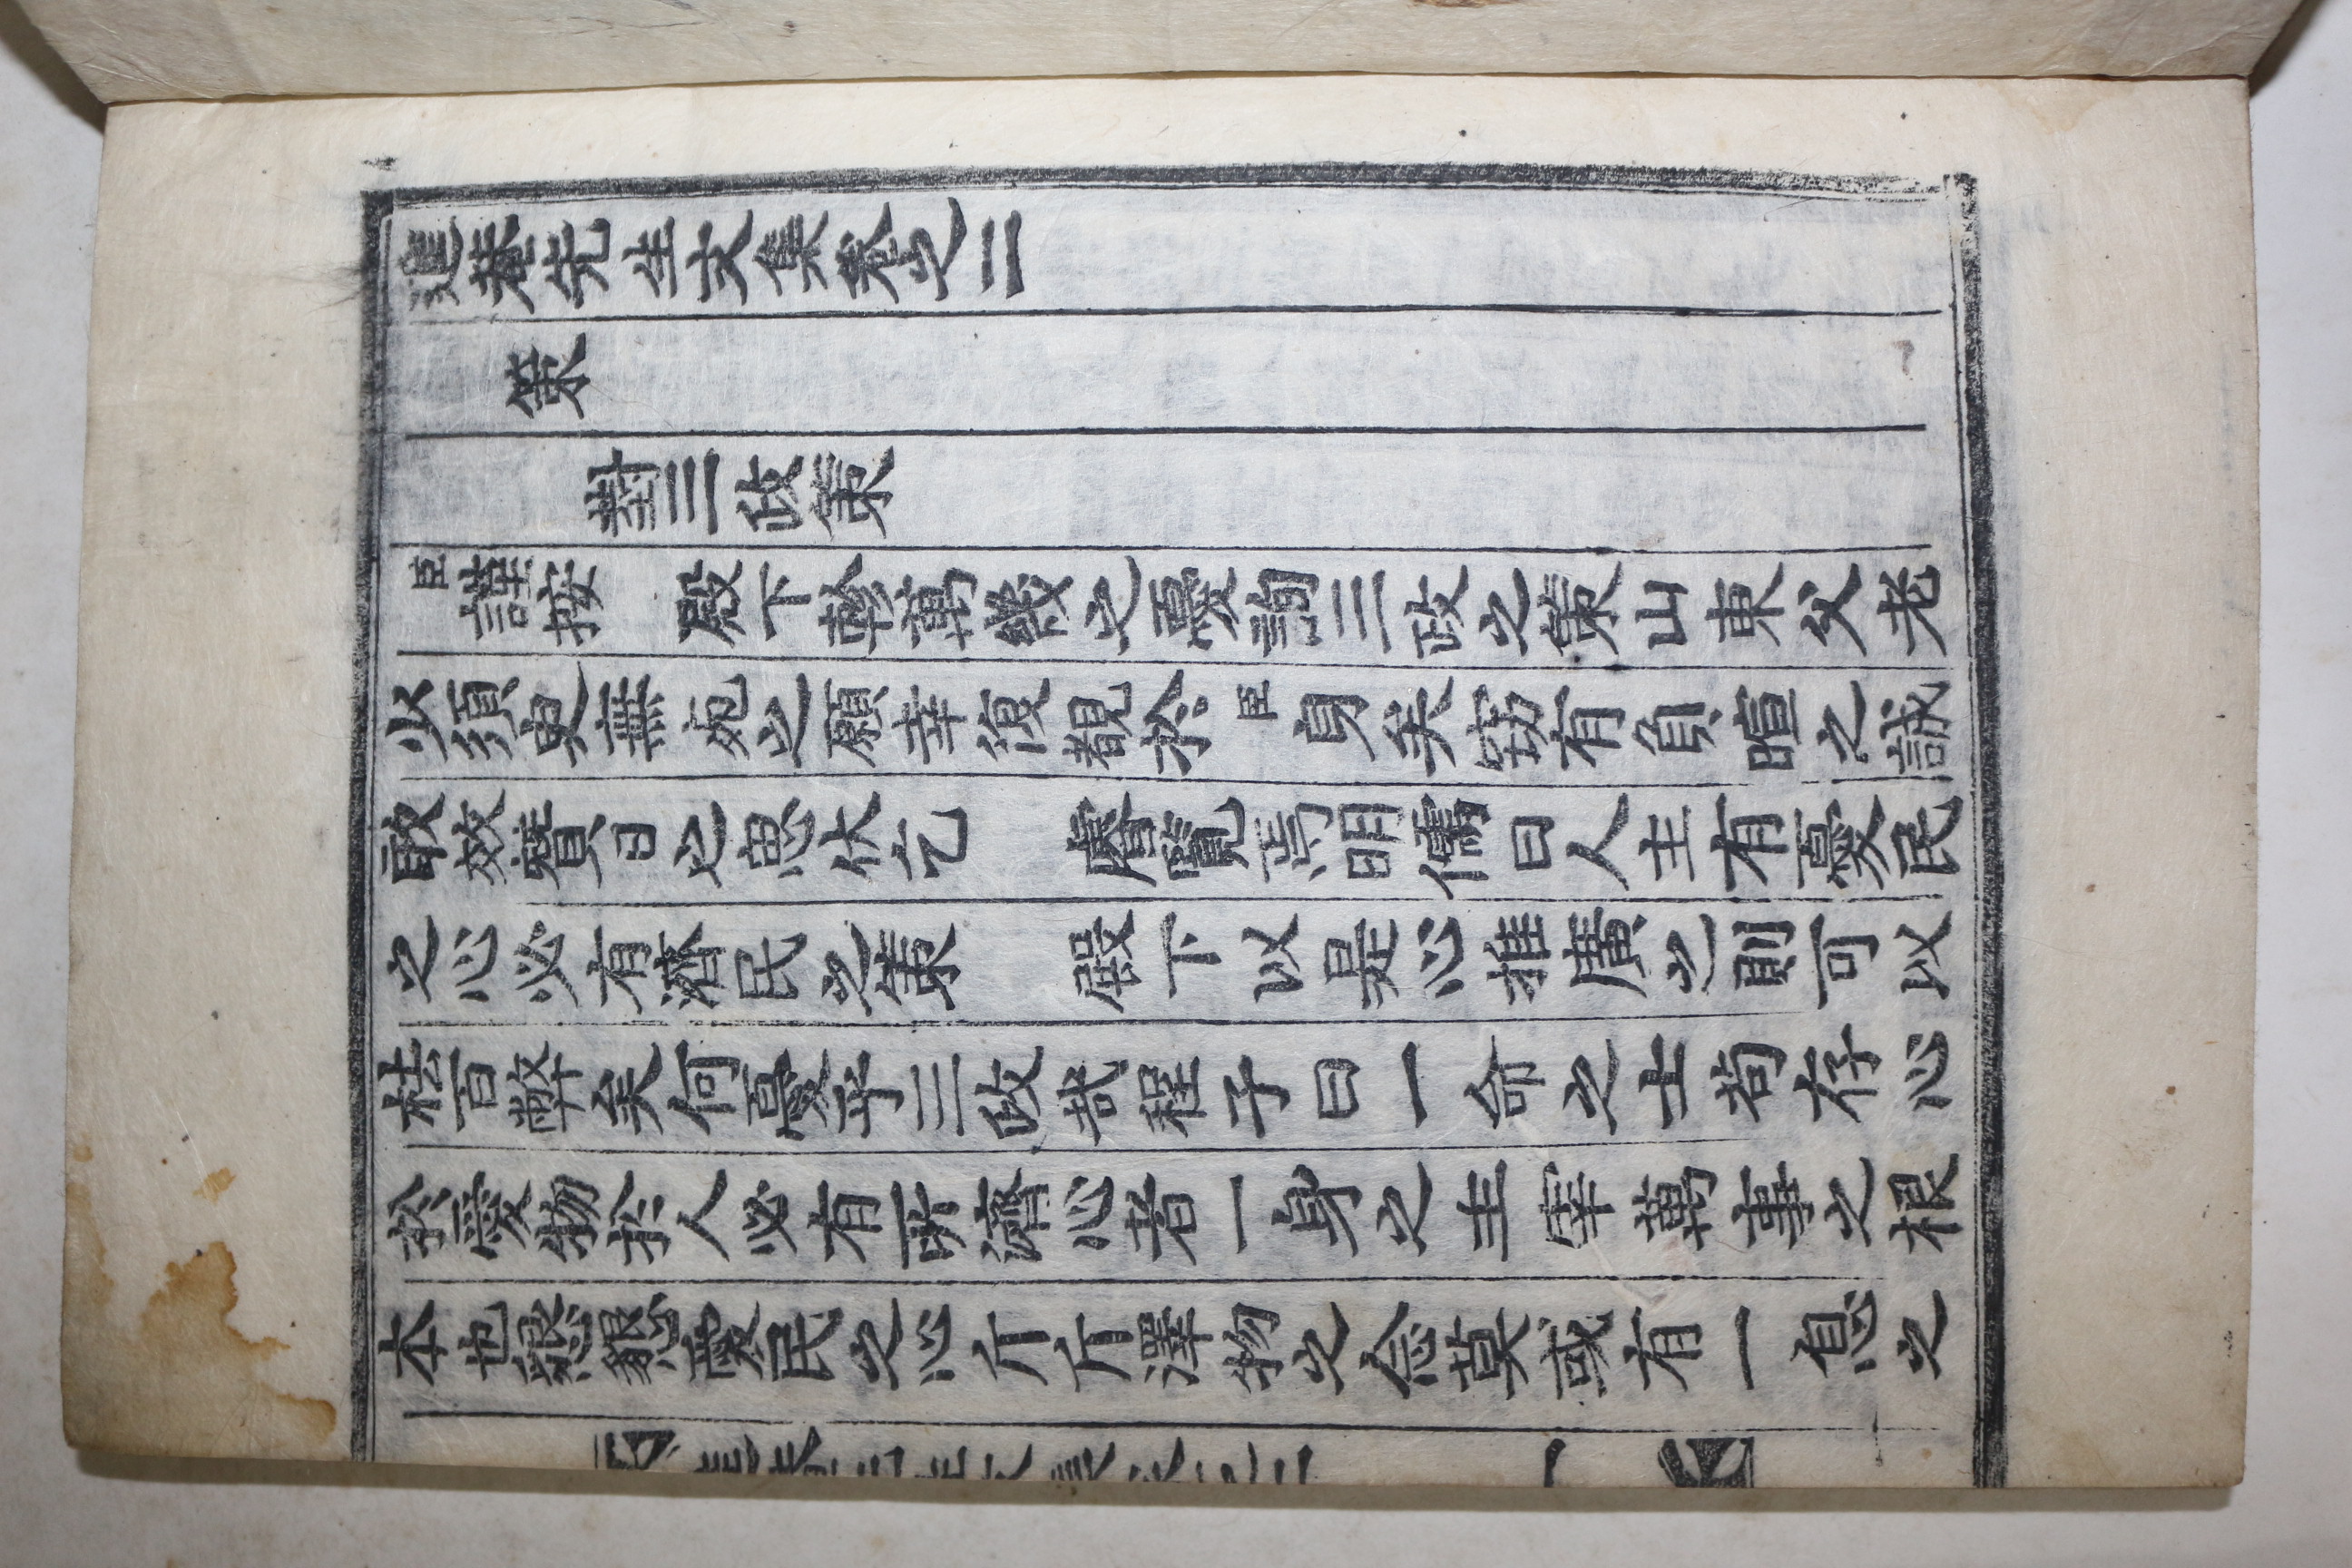 進菴先生文集卷之二
策
對三政策
臣謹按 殿下軫萬幾之憂詢三政之策山東父老
少須臾無死之願幸復覩於臣身矣窃有負暄之誠
敢效贊日之思伏乞 睿覽焉明儒曰人主有憂民
之心必有濟民之策 殿下以是心推廣之則可以
祛百弊矣何憂乎三政哉程子曰一命之士苟存心
於愛物於人必有所濟心者一身之主宰萬事之根
本也懇懇愛民之心斤斤澤物之念莫或有一息之
進菴先生文集卷之二